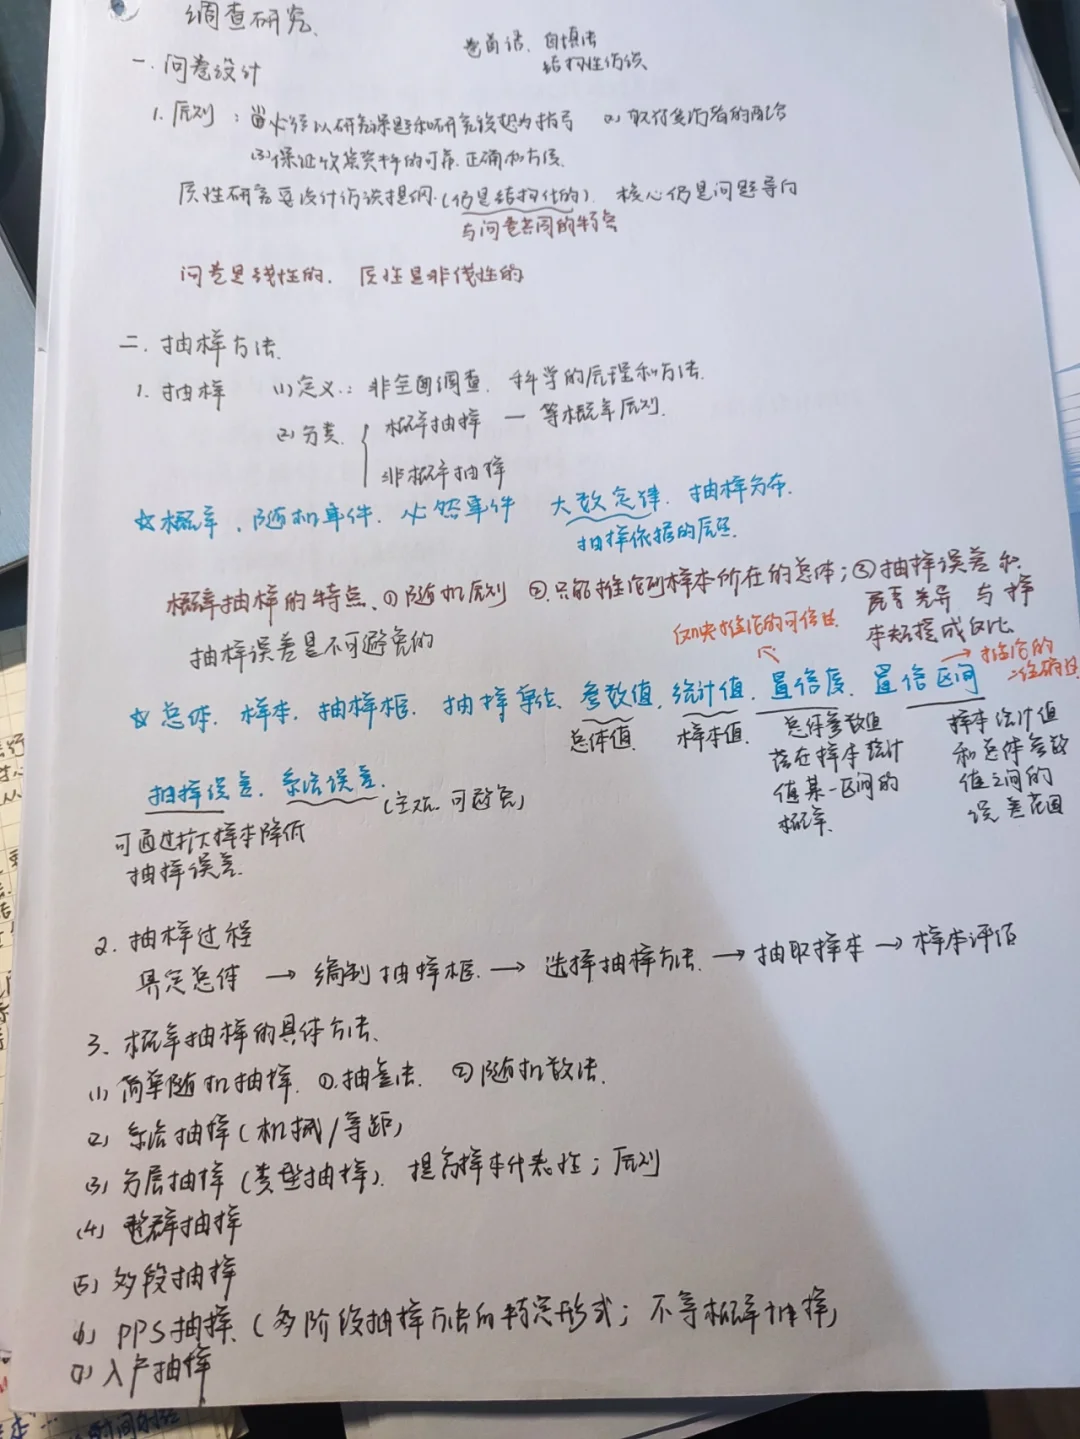 调查研究.
卷首语、自填法
结构性访谈
一. 问卷设计
1. 原则: (1)必须以研究课题和研究设想为指导 (2) 取得受访者的配合
(3)保证收集资料的可靠.正确和方便.
质性研究要设计访谈提纲.(仍是结构化的). 核心仍是问题导向
与问卷共同的特点
问卷是线性的. 质性是非线性的
二. 抽样方法.
1. 抽样 (1)定义: 非全面调查. 科学的原理和方法.
(2)分类. 概率抽样 — 等概率原则.
非概率抽样
☆概率、随机事件. 必然事件 大数定律. 抽样分布.
抽样依据的原理.
概率抽样的特点. ①随机原则 ②.只能推论到样本所在的总体; ③抽样误差和
异 与样
本规模成反比
抽样误差是不可避免的
推论的可信性
推论的
准确性
☆总体. 样本. 抽样框. 抽样单位. 参数值. 统计值. 置信度. 置信区间
总体值 样本值. 总体参数值
落在样本统计
值某一区间的
概率.
样本统计值
和总体参数
值之间的
误差范围
抽样误差. 系统误差.
(主观. 可避免)
可通过扩大样本降低
抽样误差.
2. 抽样过程
界定总体 → 编制抽样框. → 选择抽样方法. → 抽取样本 → 样本评估
3. 概率抽样的具体方法.
(1) 简单随机抽样. ①.抽签法. ②随机数法.
(2) 系统抽样(机械/等距)
(3) 分层抽样(类型抽样). 提高样本代表性; 原则
(4) 整群抽样
(5) 多段抽样
(6) PPS抽样. (多阶段抽样方法的特定形式; 不等概率抽样)
(7) 入户抽样